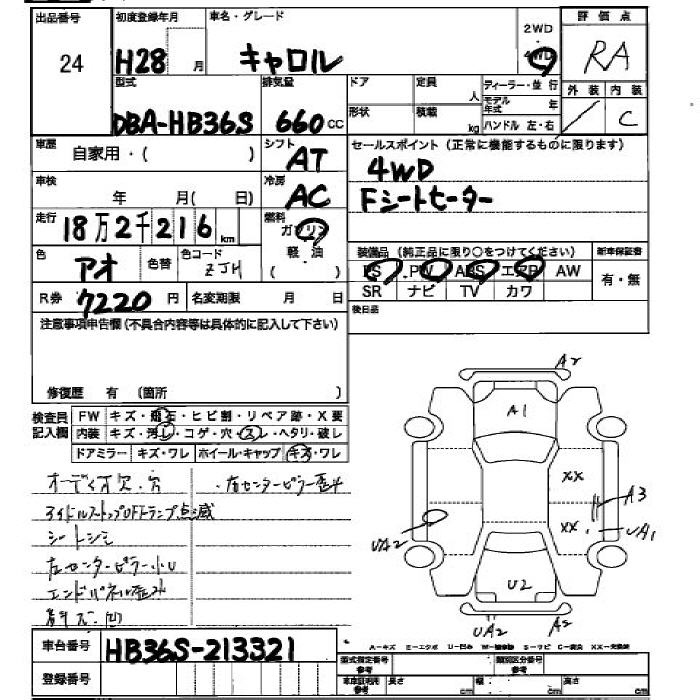 出品番号 初度登録年月 車名・グレード 2WD 評価点
24 H28 月 キャロル 4WD RA
型式 排気量 ドア 定員 人 ディーラー・並行 外装 内装
DBA-HB36S 660 cc 形状 積載 kg モデル年式 年 ハンドル 左・右 / C
車歴 自家用・( ) シフト AT セールスポイント(正常に機能するものに限ります)
4WD
車検 年 月( 日) 冷房 AC Fシートヒーター
走行 18万2千216 km 燃料 ガソリン
軽・油
( )
色 アオ 色替 色コード ZJH 装備品(純正品に限り○をつけてください) 新車保証書
PS PW ABS エアB AW 有・無
R券 7220 円 名変期限 月 日 SR ナビ TV カワ
注意事項申告欄(不具合内容等は具体的に記入して下さい) 後日品
修復歴 有 (箇所 )
検査員記入欄 FW キズ・・ヒビ割・リペア跡・X要
内装 キズ・汚レ・コゲ・穴・スレ・ヘタリ・破レ
ドアミラー キズ・ワレ ホイール・キャップ キズ・ワレ
オーディオ欠・穴
アイドルストップOFFランプ点滅
シートシミ
左センターピラー小U
A2
A1
XX
A3
XX
UA1
UA2
U2
UA2
A2
車台番号 HB36S-213321
A-キズ E-エクボ U-凹み S-サビ C-腐食 XX-交換済
登録番号 型式指定番号 参考 類別区分番号 参考
車車証明用 参考 長さ cm 幅 cm 高さ cm